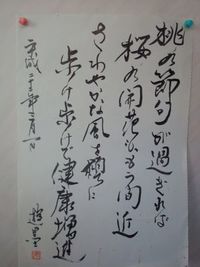 桃の節句が過ぎれば
桜の開花ももう間近
さわやかな風を頬に
歩け歩けで健康増進
平成二十三年三月一日